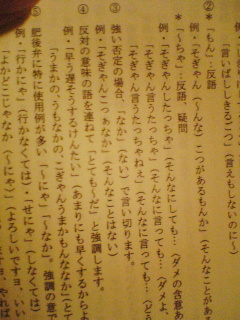 例・「言いばししきるごつ」（言えもしないのに〜）
② ＊「もん」：反語
例・「そぎゃん（〜んな）こつがあるもんか」（そんなことがあ
＊「〜ちゃ」：反語、疑問
例・「そぎゃんしたっちゃ」（そんなにしても…（ダメの含意あ
「そぎゃん言うたっちゃ」（そんなに言っても…（ダメよ、
「そぎゃん言うたっちゃねぇ」（そんなに言っても…（ど
③ 強い否定の場合、「なか」（ない）で言い切ります。
例・「そぎゃんこつぁなか」（そんなことはない）
④ 反対の意味の語を連ねて「とても〜だ」と強調します。
例・「早う遅そうするけんたい」（あまりにも早くするからよ
「うまかの、うもなかの」「こぎゃんうまかもんなか」（とて
⑤ 肥後弁に特に使用例が多い「〜にゃ」「〜なか」。強調の意
例・「行かにゃ」（行かなくては）・「せにゃ」（しなくては）
「よかどこじゃなか（〜にゃ）」（よろしいですヨ、いい